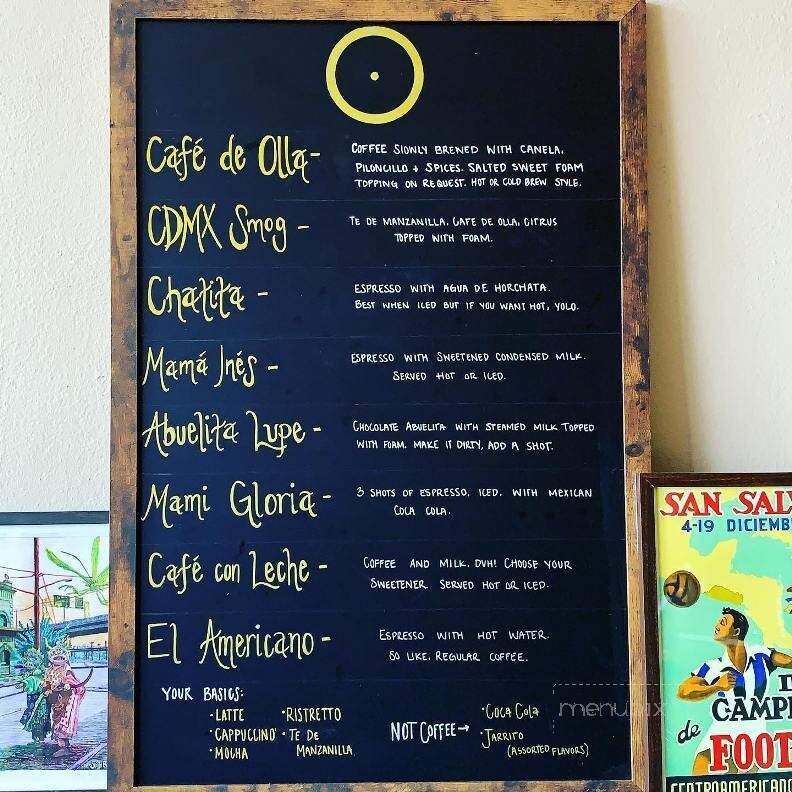 Café de Olla- COFFEE SLOWLY BREWED WITH CANELA,
PILONCILLO + SPICES. SALTED SWEET FOAM
TOPPING ON REQUEST. HOT OR COLD BREW STYLE.
CDMX Smog - TE DE MANZANILLA, CAFE DE OLLA, CITRUS
TOPPED WITH FOAM.
Chatita - ESPRESSO WITH AGUA DE HORCHATA.
BEST WHEN ICED BUT IF YOU WANT HOT, YOLO.
Mamá Inés - ESPRESSO WITH SWEETENED CONDENSED MILK.
SERVED HOT OR ICED.
Abuelita Lupe - CHOCOLATE ABUELITA WITH STEAMED MILK TOPPED
WITH FOAM. MAKE IT DIRTY, ADD A SHOT.
Mami Gloria - 3 SHOTS OF ESPRESSO. ICED. WITH MEXICAN
COCA COLA.
Café con Leche - COFFEE AND MILK. DUH! CHOOSE YOUR
SWEETENER. SERVED HOT OR ICED.
El Americano - ESPRESSO WITH HOT WATER.
SO LIKE, REGULAR COFFEE.
YOUR BASICS:
·LATTE
·CAPPUCCINO
·MOCHA
·RISTRETTO
·TE DE
MANZANILLA
NOT COFFEE→
·COCA COLA
·JARRITO
(ASSORTED FLAVORS)
menubix
SAN SAL
4-19 DICIEMB
CAMPE
de
FOOT
CENTROAMERICANO